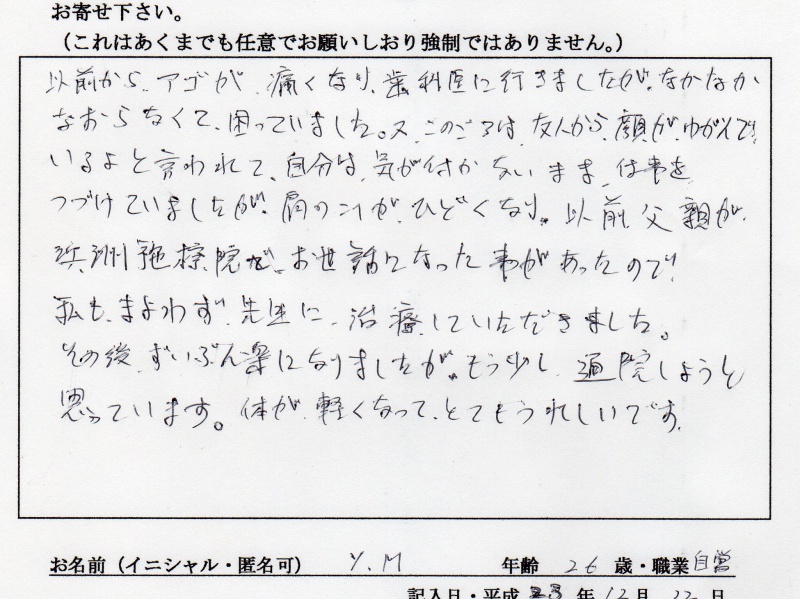 お寄せ下さい。
（これはあくまでも任意でお願いしおり強制ではありません。）
以前から、アゴが、痛くなり、歯科医に行きましたが、なかなか
なおらなくて、困っていました。又、このごろは、友人から、顔が、ゆがんで
いるよと言われて、自分は、気が付かないまま、仕事を
つづけていましたが、肩のコリが、ひどくなり、以前父親が、
浜洲施療院で、お世話になった事があったので
私も、まよわず、先生に、治療していただきました。
その後、ずいぶん楽になりましたが、もう少し、通院しようと
思っています。体が、軽くなって、とてもうれしいです。
お名前（イニシャル・匿名可） Y.M 年齢 26 歳・職業 自営
記入日・平成 年 12月 22日